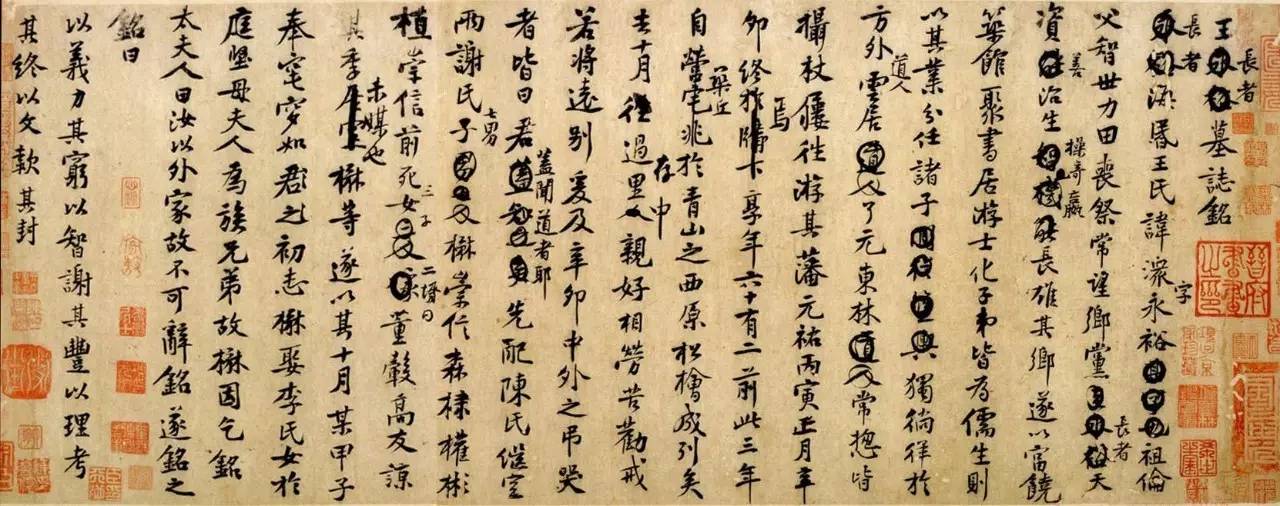 王長者墓誌銘
長者王氏諱字永裕祖倫
父智世力田喪祭常望鄉黨長者天
資善治生操奇贏能長雄其鄉遂以富饒
築館聚書居游士化子弟皆為儒生則
以其業分任諸子獨徜徉於
方外雲居道人了元東林道人常揔皆
攝杖屨往游其藩焉元祐丙寅正月辛
卯終於牖下享年六十有二前此三年
自營築丘宅兆於青山之西原松檜成列矣
去十月存過里中親好相勞苦勸戒
若將遠別爰及辛卯中外之弔哭
者皆曰君蓋聞道者耶先配陳氏繼室
兩謝氏子七男楙崇信森棣權彬
植崇信前死女三子二壻曰董毅高友諒
其季未媒也楙等遂以其十月某甲子
奉窀穸如君之初志楙娶李氏女於
庭堅母夫人為族兄弟故楙因乞銘
太夫人曰汝以外家故不可辭銘遂銘之
銘曰
以義力其窮以智謝其豐以理考
其終以文款其封